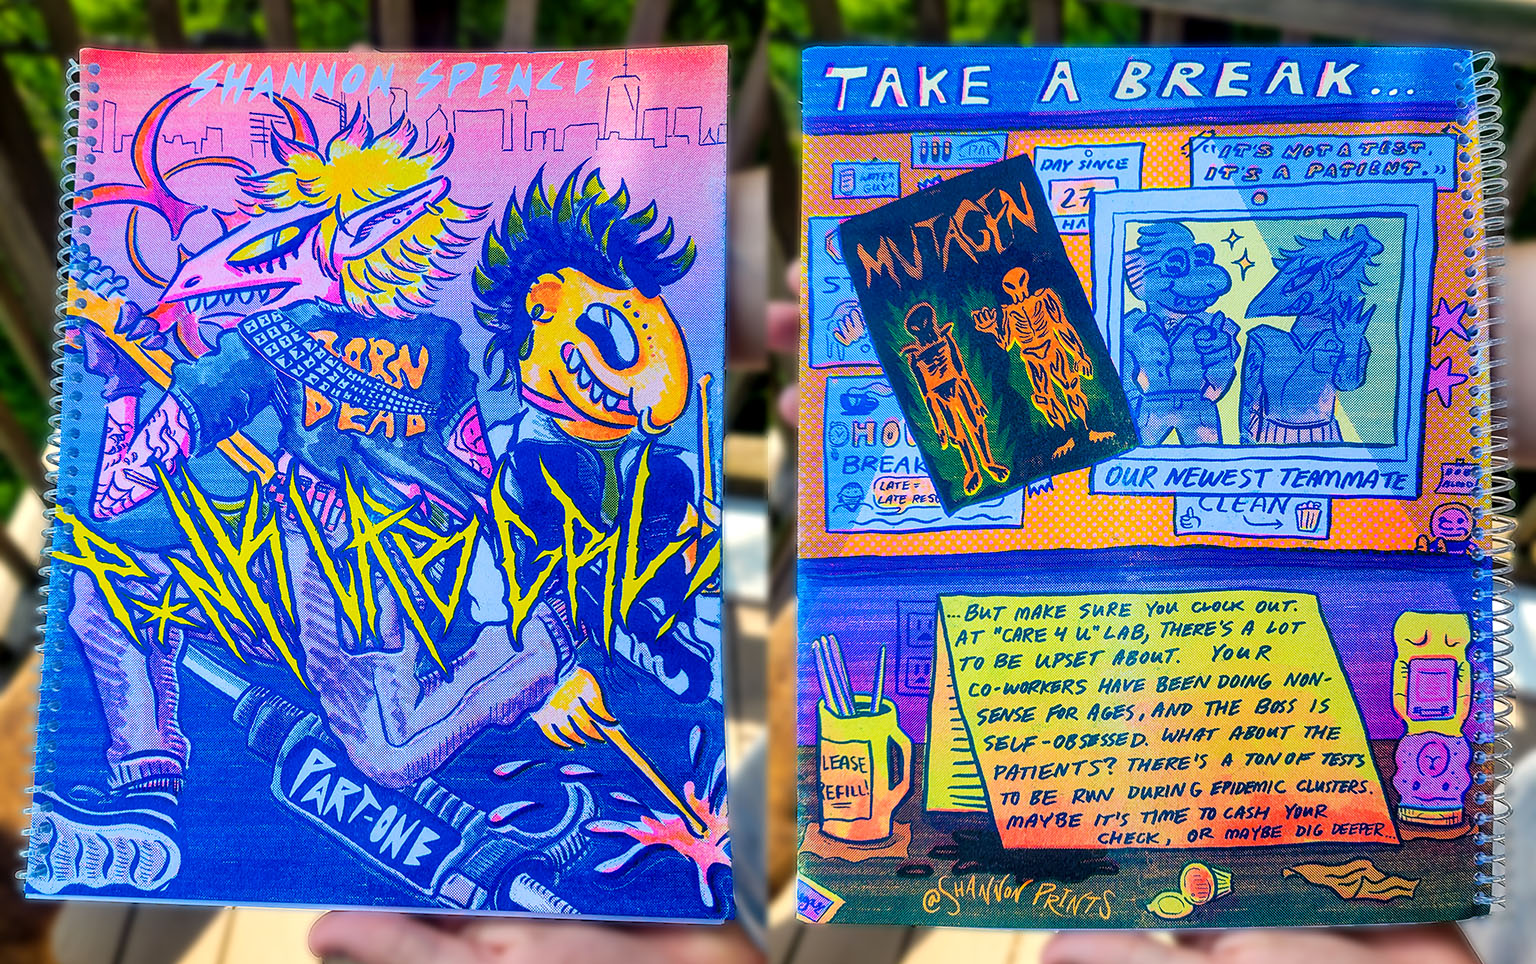 SHANNON SPENCE
BORN
DEAD
P*NK LAB GRL!
PART-ONE
TAKE A BREAK...
DAY SINCE
27
HA
"IT'S NOT A TEST.
IT'S A PATIENT."
MUTAGEN
HOU
BREAK
LATE =
LATE RESU
OUR NEWEST TEAMMATE
CLEAN
...BUT MAKE SURE YOU CLOCK OUT.
AT "CARE 4 U" LAB, THERE'S A LOT
TO BE UPSET ABOUT. YOUR
CO-WORKERS HAVE BEEN DOING NON-
SENSE FOR AGES, AND THE BOSS IS
SELF-OBSESSED. WHAT ABOUT THE
PATIENTS? THERE'S A TON OF TESTS
TO BE RUN DURING EPIDEMIC CLUSTERS.
MAYBE IT'S TIME TO CASH YOUR
CHECK, OR MAYBE DIG DEEPER...
LEASE
REFILL!
@SHANNON PRINTS